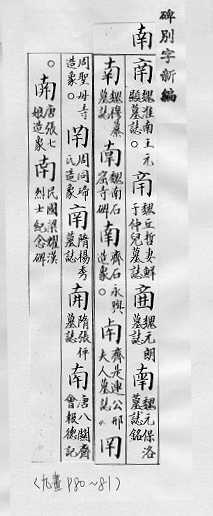 碑別字新編
南
南 魏淮南王元顯墓誌。 南 魏丘哲妻鮮于仲兒墓誌 南 魏元朗墓誌 南 魏元保洛墓誌銘
南 魏穆纂墓誌 南 魏南石窟寺碑 南 齊石永興造象。 南 齊是連公邢夫人墓誌〃 罔
周聖母寺造象。 罔 周同琋氏造象 南 隋楊秀墓誌 南 隋張伏墓誌 南 唐八關齋會報德記
。南 唐張七娘造象 南 民國梁耀漢烈士紀念碑
(九畫 P80~81)